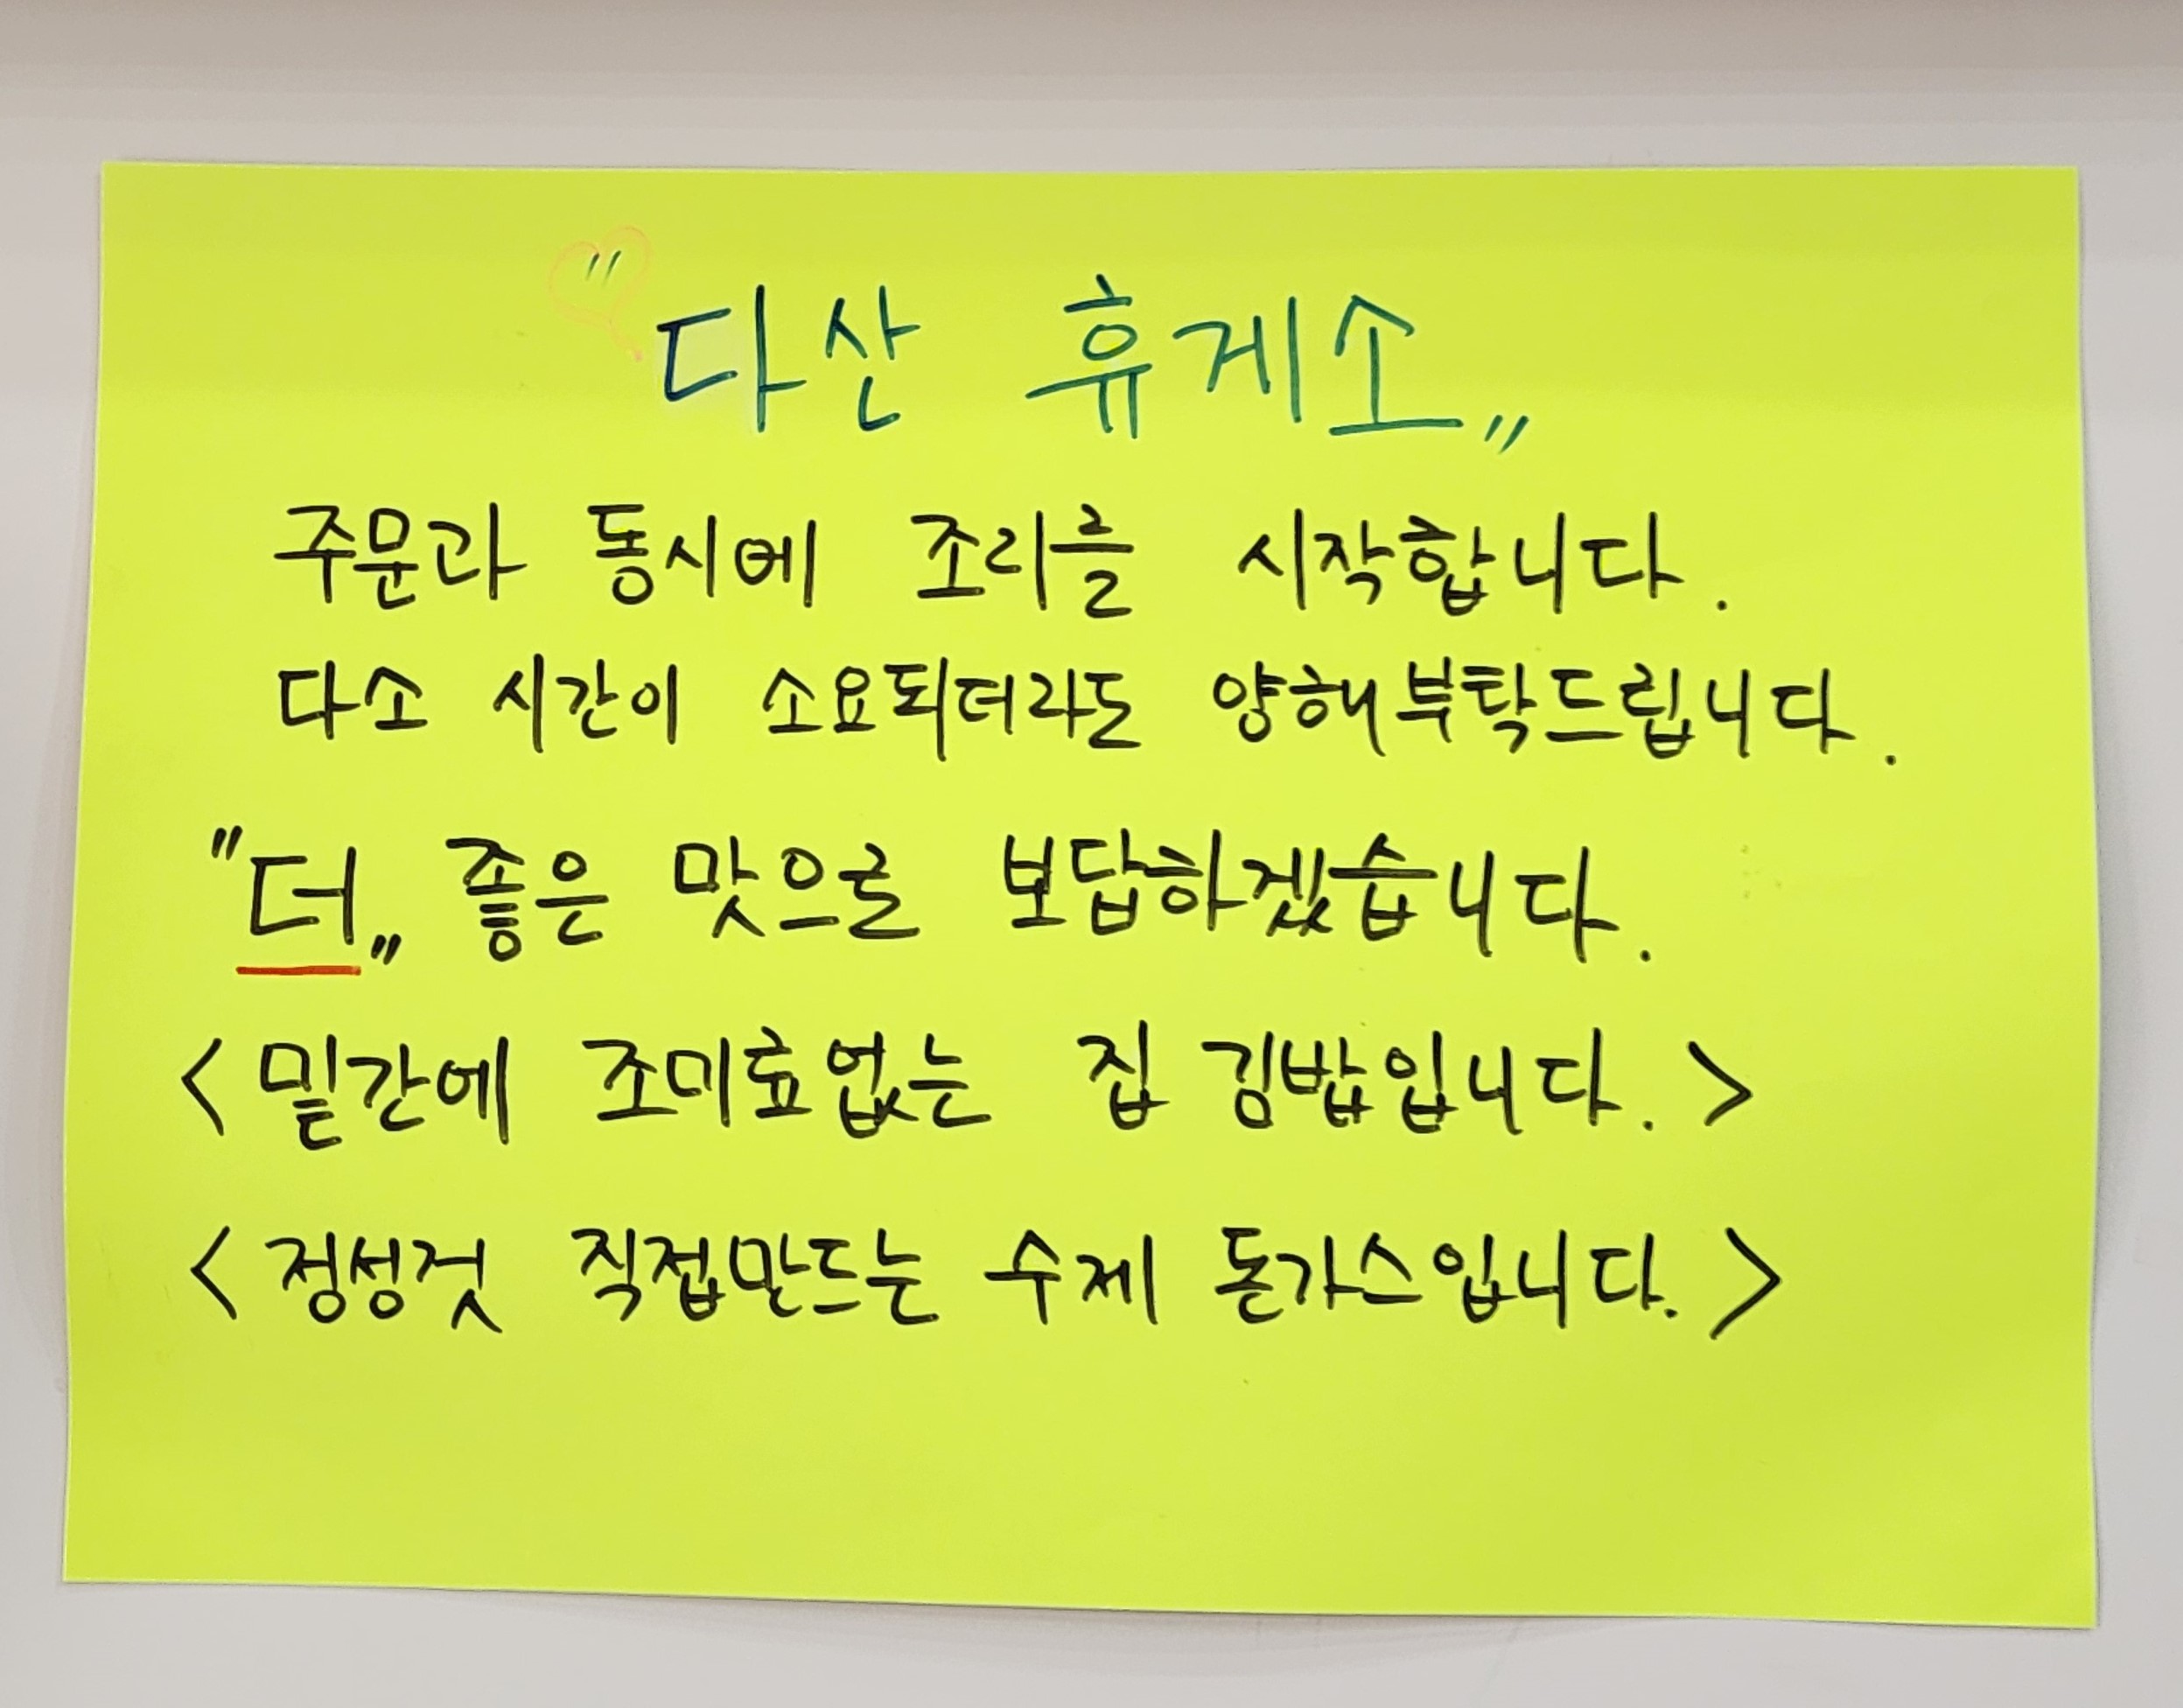 "다산 휴게소"
주문과 동시에 조리를 시작합니다.
다소 시간이 소요되더라도 양해부탁드립니다.
"더" 좋은 맛으로 보답하겠습니다.
<밑간에 조미료없는 집 김밥입니다.>
<정성껏 직접만드는 수제 돈가스입니다.>